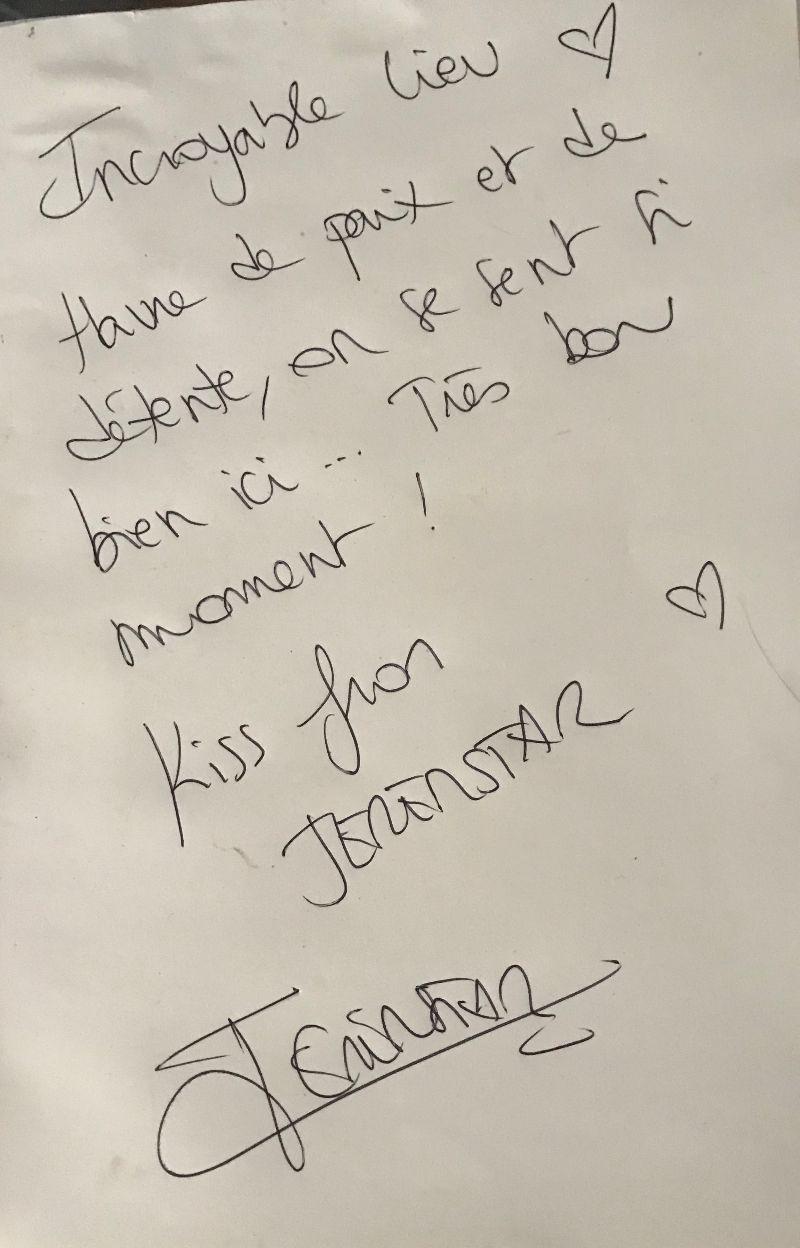 Incroyable lieu ♡
Havre de paix et de
détente, on se sent si
bien ici... Très bon
moment !
Kiss from
JEREMSTAR ♡
JEREMSTAR